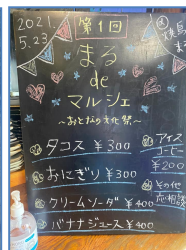 2021.
5.23
第1回
まる
de
マルシェ
〜おとなり文化祭〜
タコス ¥300
おにぎり ¥300
クリームソーダ ¥400
バナナジュース ¥400
アイス
コーヒー
¥200
その他
応相談